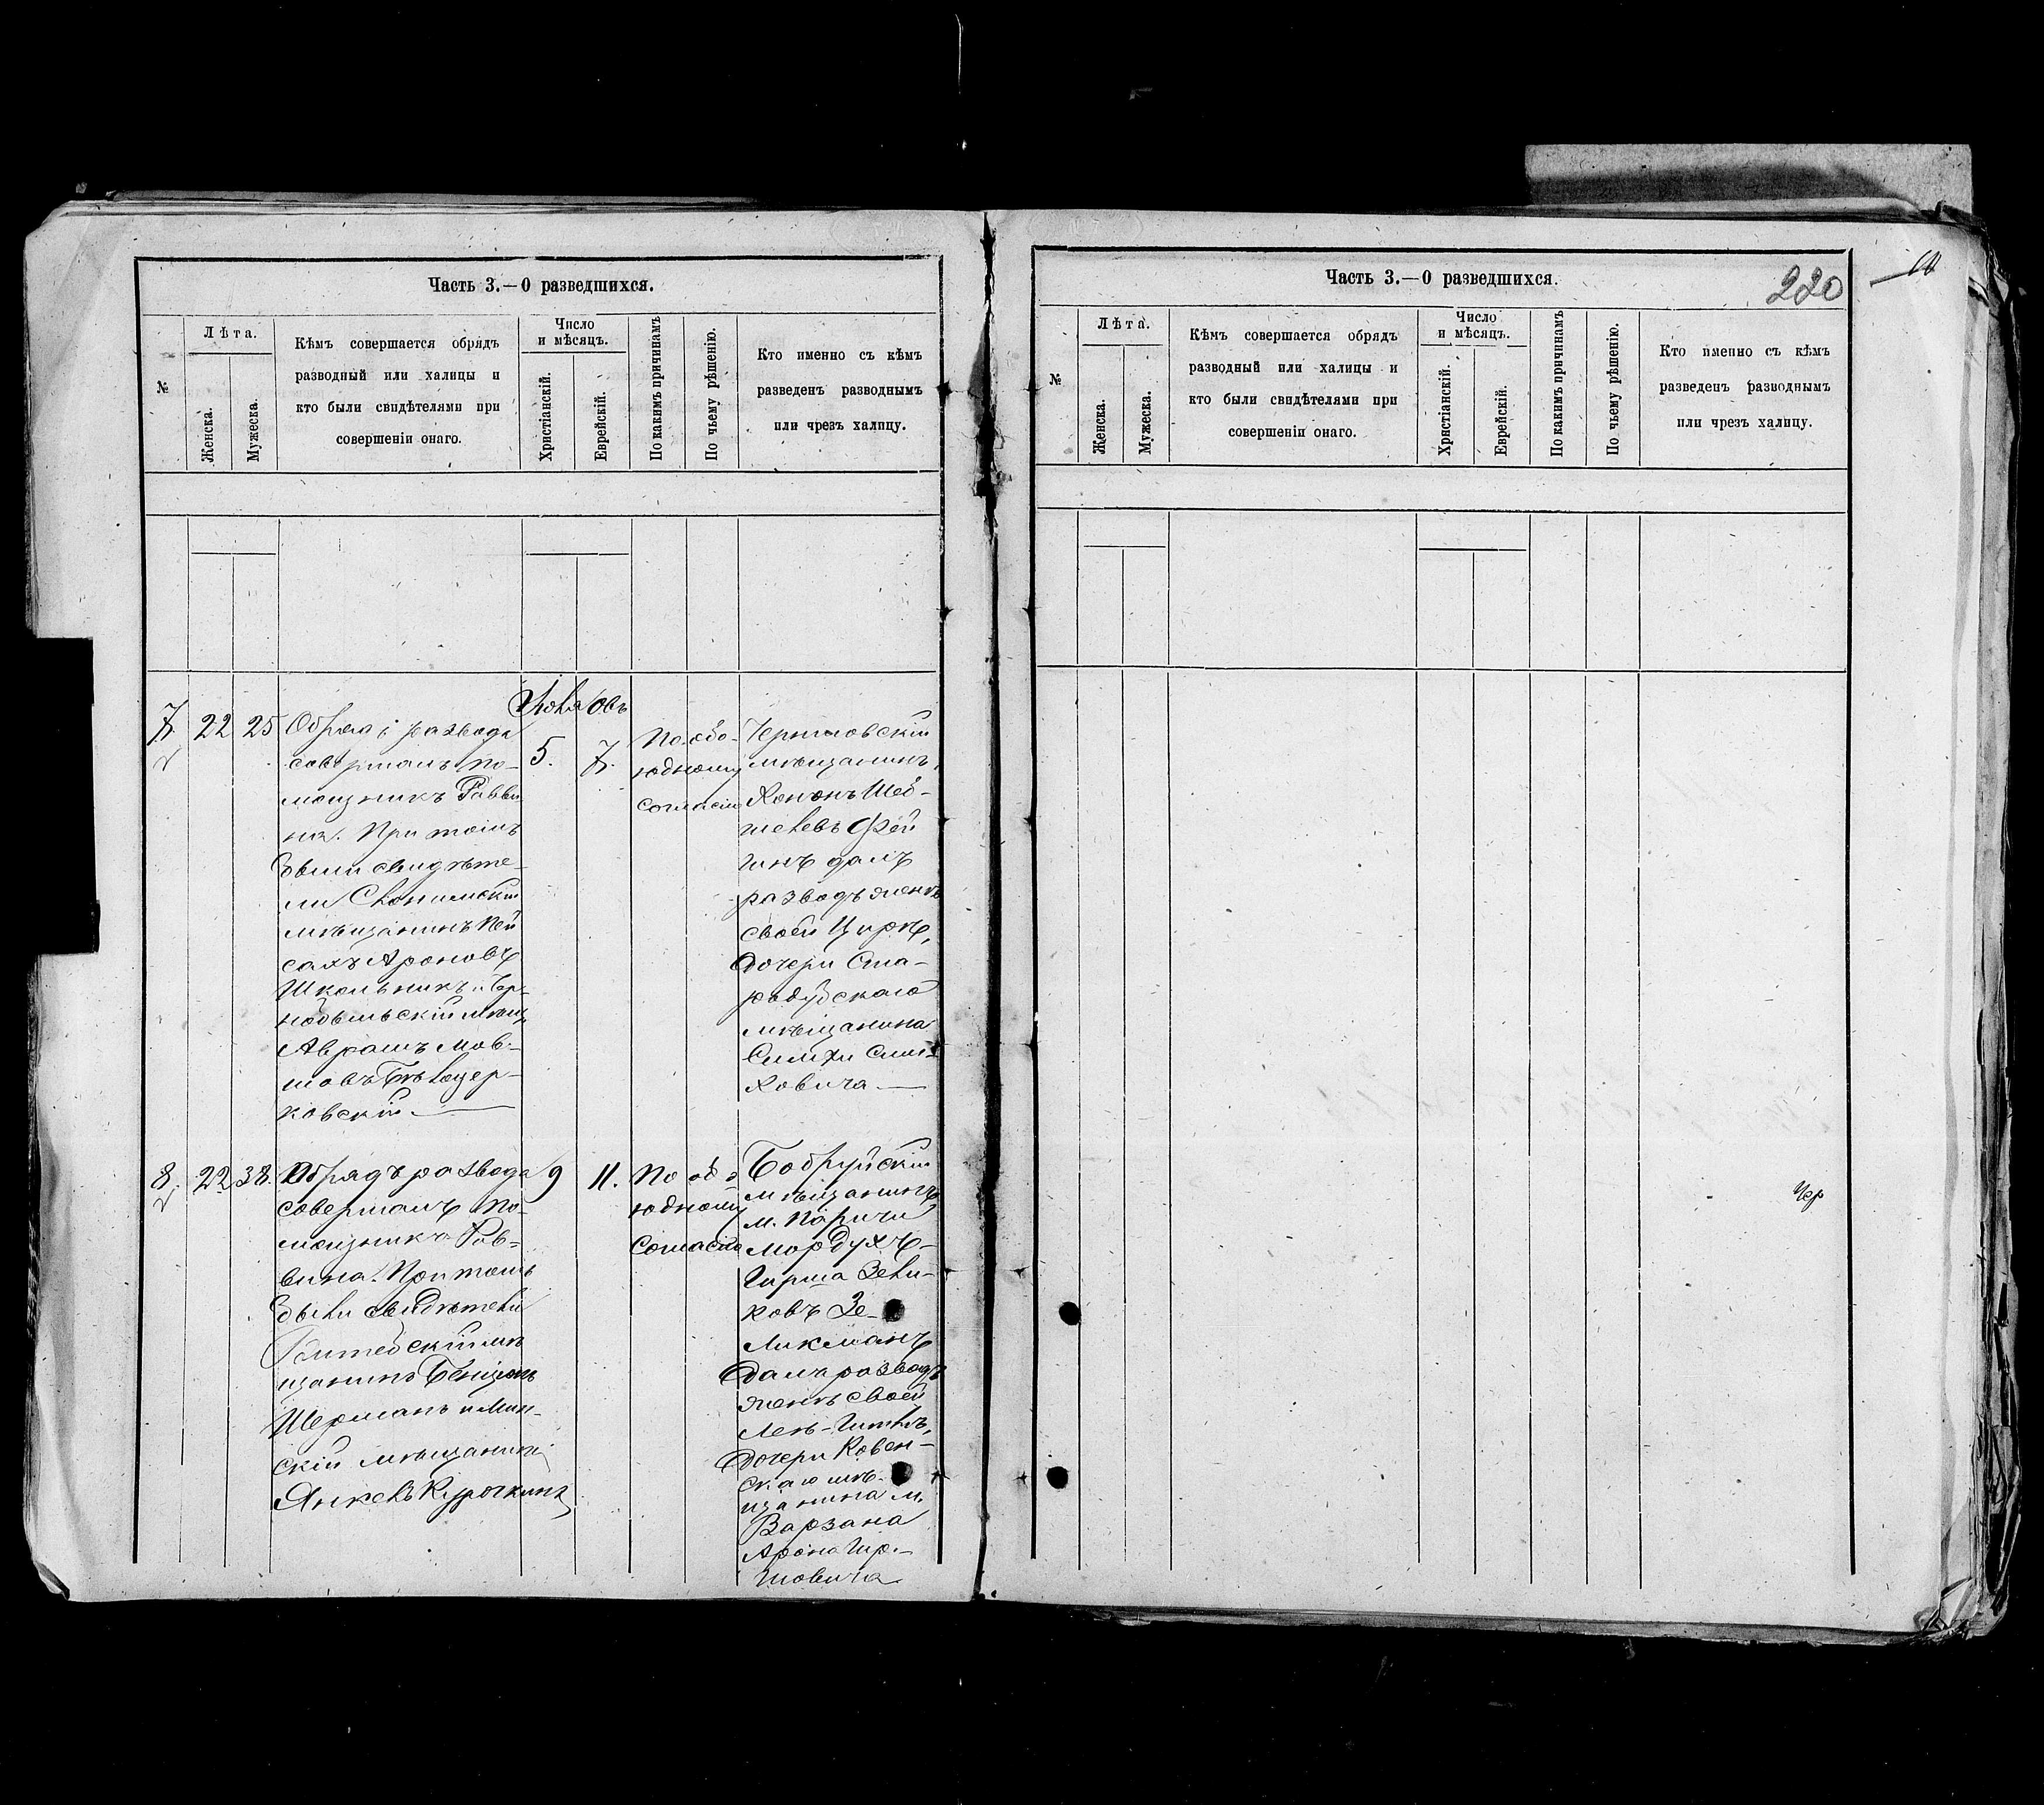 Часть 3.—О разведшихся.
№
Лѣта.
Женска.
Мужеска.
Кѣмъ совершается обрядъ
разводный или халицы и
кто были свидѣтелями при
совершеніи онаго.
Число
и мѣсяцъ.
Христіанскій.
Еврейскій.
По какимъ причинамъ
По чьему рѣшенію.
Кто именно съ кѣмъ
разведенъ разводнымъ
или чрезъ халицу.
7
22
25
Обрядъ развода
совершалъ по-
мощникъ Равви
на. При томъ
были свидѣте-
ли Слонимскій
мѣщанинъ Пей
сахъ Ароновъ
Школьникъ и Чер-
нобыльскій мѣщ.
Аврамъ Мов-
шовъ Бѣлоцер-
ковскій.
5.
7.
По обо-
юдному
согласію
мѣщанинъ
далъ
разводъ женѣ
своей Циркѣ,
дочери Ста-
родубскаго
мѣщанина
Симхи Сим-
ховича
8.
22
38.
Обрядъ развода
совершалъ по-
мощникъ Рав-
вина. При томъ
были свидѣтели
Витебскій мѣ
щанинъ Бенціонъ
Шерманъ и Мин-
скій мѣщанинъ
Янкель Курочкинъ
9
11.
По обо
юдному
согласію
Бобруйскій
мѣщанинъ
м. Паричи
Мордухъ-
Гирша Зели-
ковъ Зе-
ликманъ
далъ разводъ
женѣ своей
Леѣ-Гитлѣ,
дочери Ковен-
скаго мѣ-
щанина м.
Арона Гир-
шовича
Часть 3.—О разведшихся.
220
№
Лѣта.
Женска.
Мужеска.
Кѣмъ совершается обрядъ
разводный или халицы и
кто были свидѣтелями при
совершеніи онаго.
Число
и мѣсяцъ.
Христіанскій.
Еврейскій.
По какимъ причинамъ
По чьему рѣшенію.
Кто именно съ кѣмъ
разведенъ разводнымъ
или чрезъ халицу.